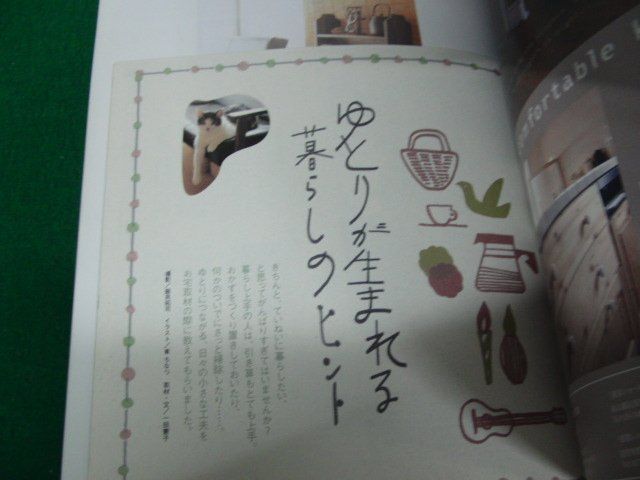 ゆとりが生まれる
暮らしのヒント
きちんと、ていねいに暮らしたい、
と思ってがんばりすぎてはいませんか？
暮らし上手の人は、引き算もとても上手。
おかずをつくり置きしておいたり、
何かのついでにさっと掃除したり……。
ゆとりにつながる、日々の小さな工夫を
お宅取材の際に教えてもらいました。
comfortable